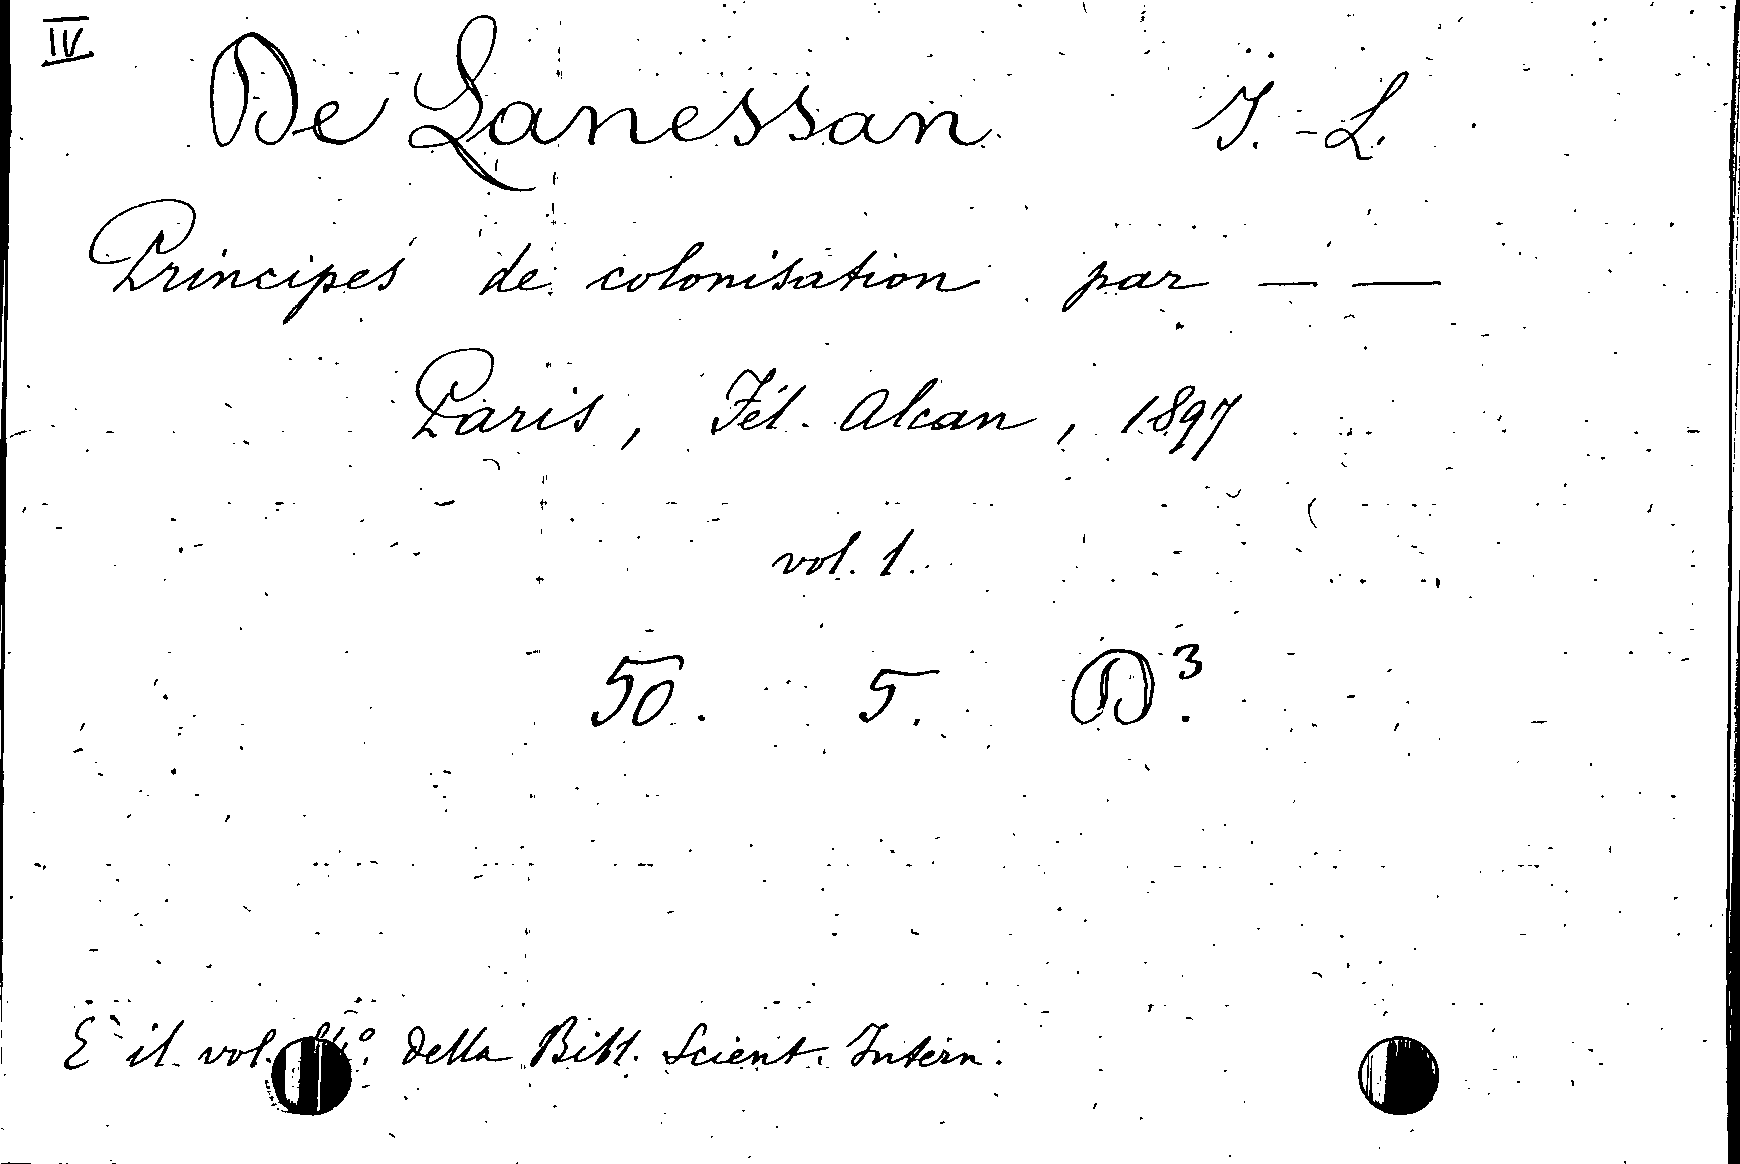 IV
De Lanessan J.-L.
Principes de colonisation par — —
Paris, Fél. Alcan, 1897
vol. 1.
50. 5. D³.
È il vol. della Bibl. Scient. Intern.